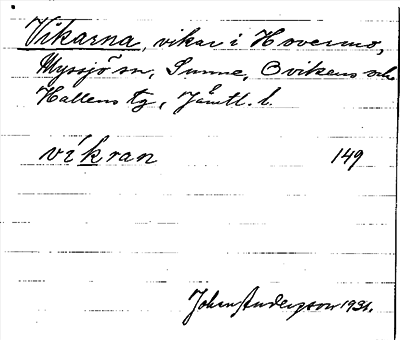 Vikarna, vikar i Hovermo,
Myssjö sn, Sunne, Ovikens och
Hallens tg, Jämtl. l.
vikran 149
Johan Anderson 1931.